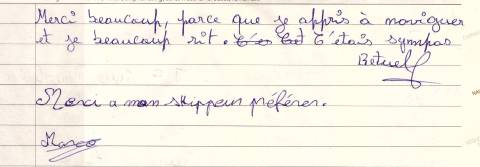 Merci beaucoup, parce que je appris à naviguer
et je beaucoup rit. C'étais sympas
Betuel
Merci a mon skippeur préférer.
Marco